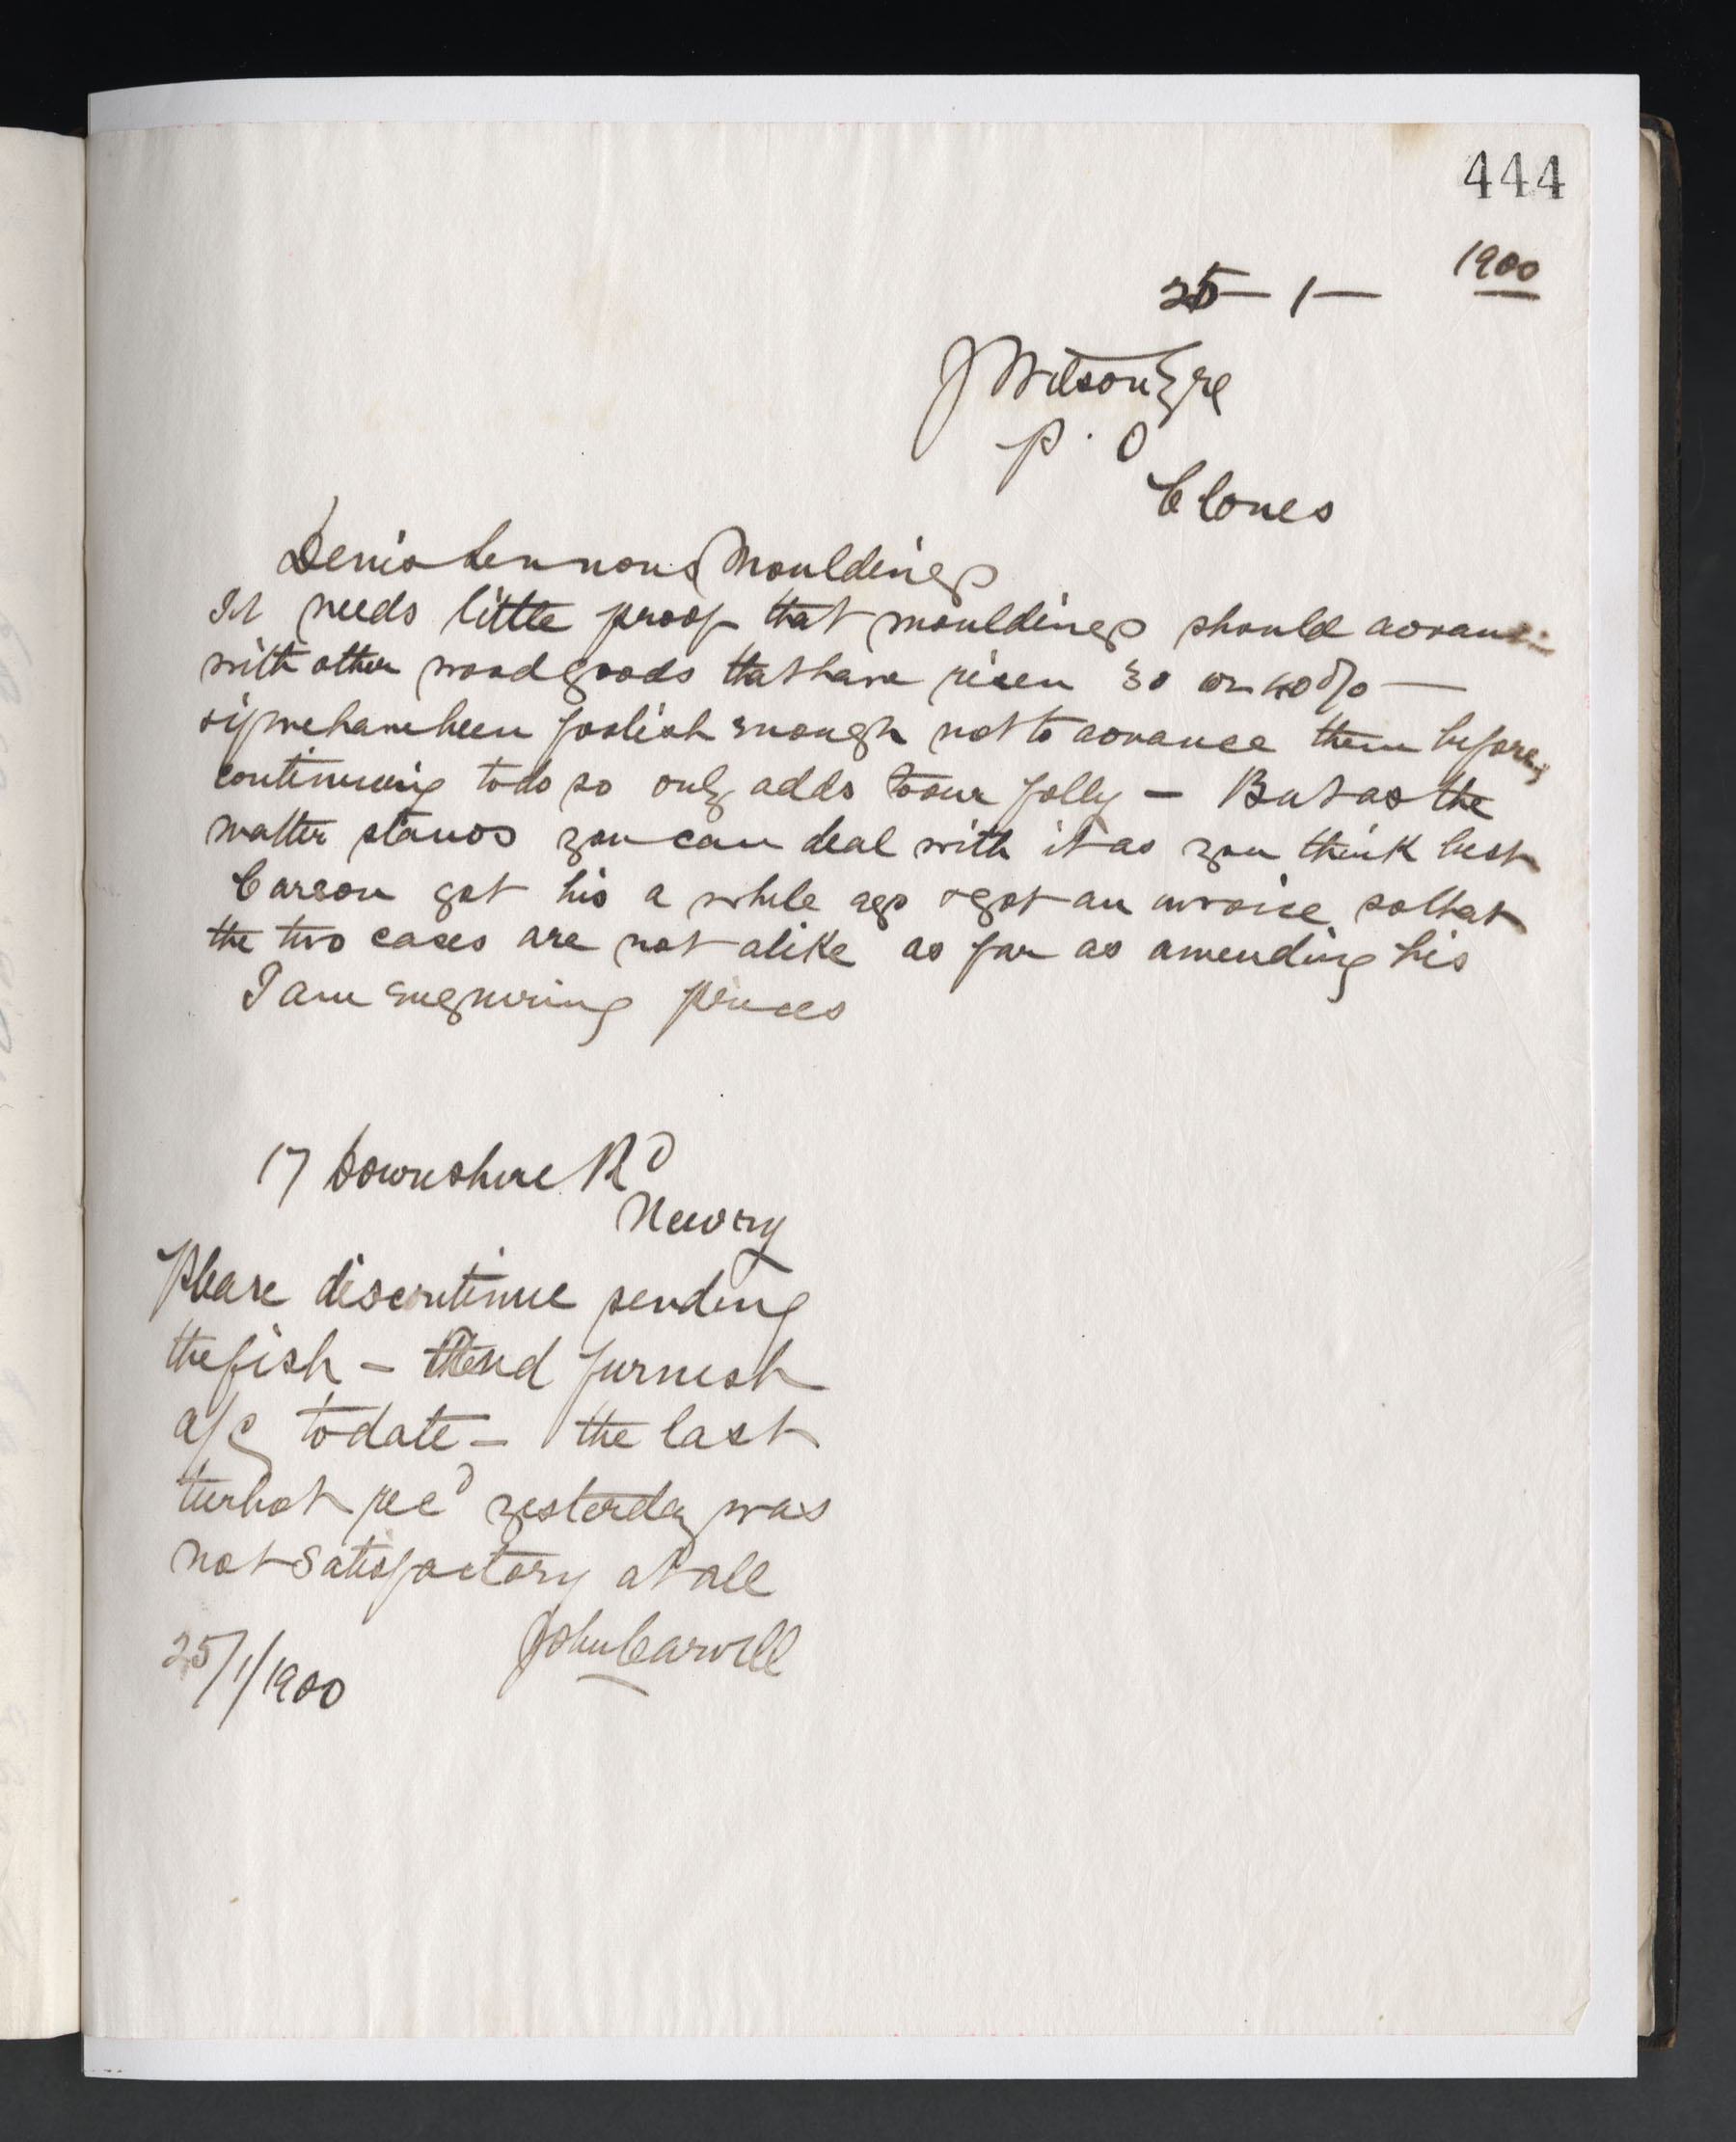 444
25 - 1 - 1900
J Wilson Esre
P. O
Clones
Denis Lennons Mouldings
It needs little proof that mouldings should advance
with other wood goods that have risen 30 or 40% —
& if we have been foolish enough not to advance them before,
continuing to do so only adds to our folly — But as the
matter stands you can deal with it as you think best
Carson got his a while ago & got an invoice so that
the two cases are not alike as far as amending his
I am enquiring prices
17 Downshire Rd
Newry
Please discontinue sending
the fish — and furnish
a/c to date — the last
turbot recd yesterday was
not satisfactory at all
John Carvill
25/1/1900